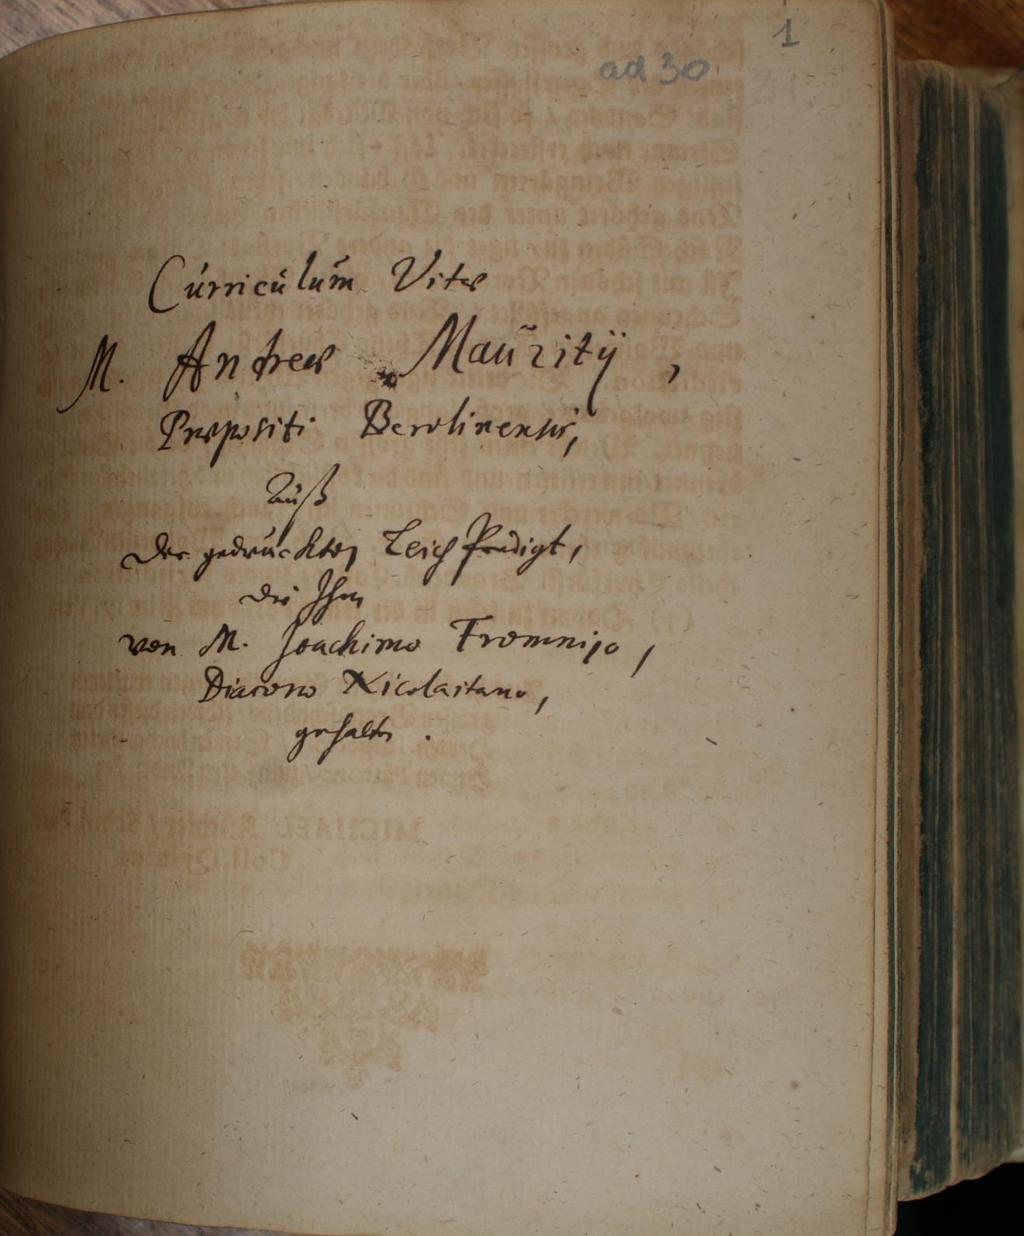 1
ad 30
Curriculum Vitæ
M. Andreæ Mauritÿ,
Præpositi Berolinensis,
Auß
der gedruckten LeichPredigt,
die Ihm
von M. Joachimo Frommijo,
Diacono Nicolaitano,
gehalten.